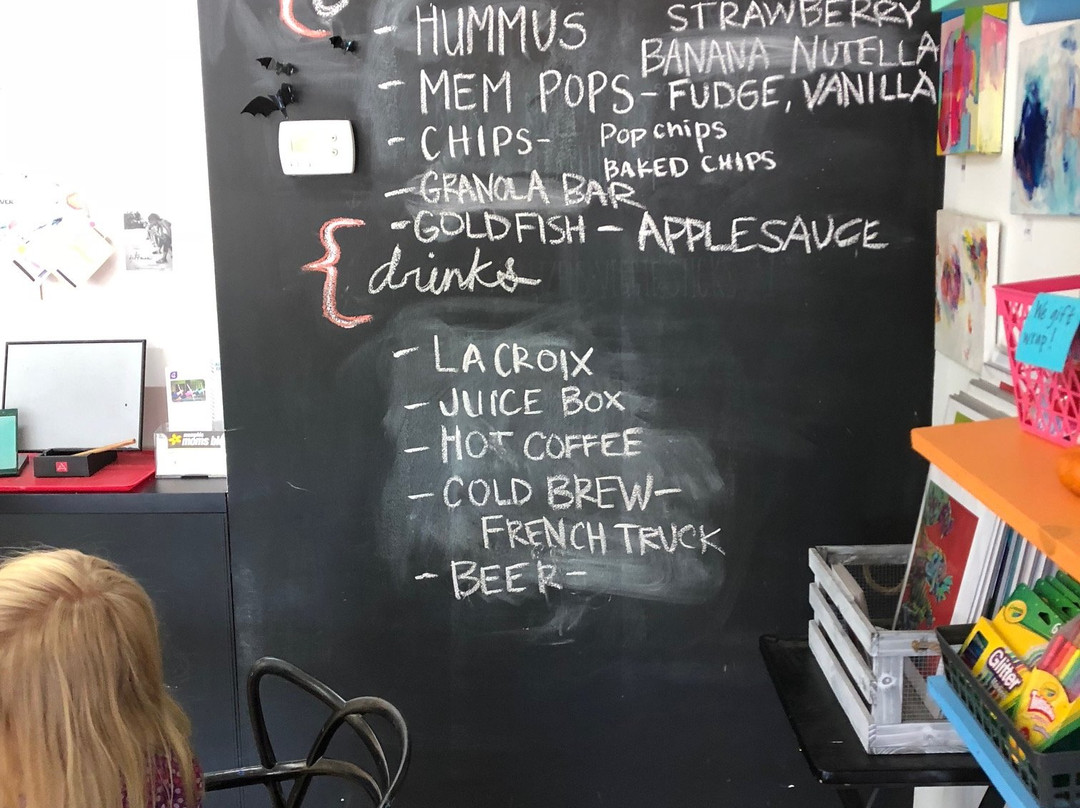 - HUMMUS STRAWBERRY
BANANA NUTELLA
- MEM POPS - FUDGE, VANILLA
- CHIPS- Pop chips
BAKED CHIPS
- GRANOLA BAR
- GOLDFISH - APPLESAUCE
drinks
- LA CROIX
- JUICE BOX
- HOT COFFEE
- COLD BREW-
FRENCH TRUCK
- BEER-
We gift
wrap!
memphis
moms bl
Glitter